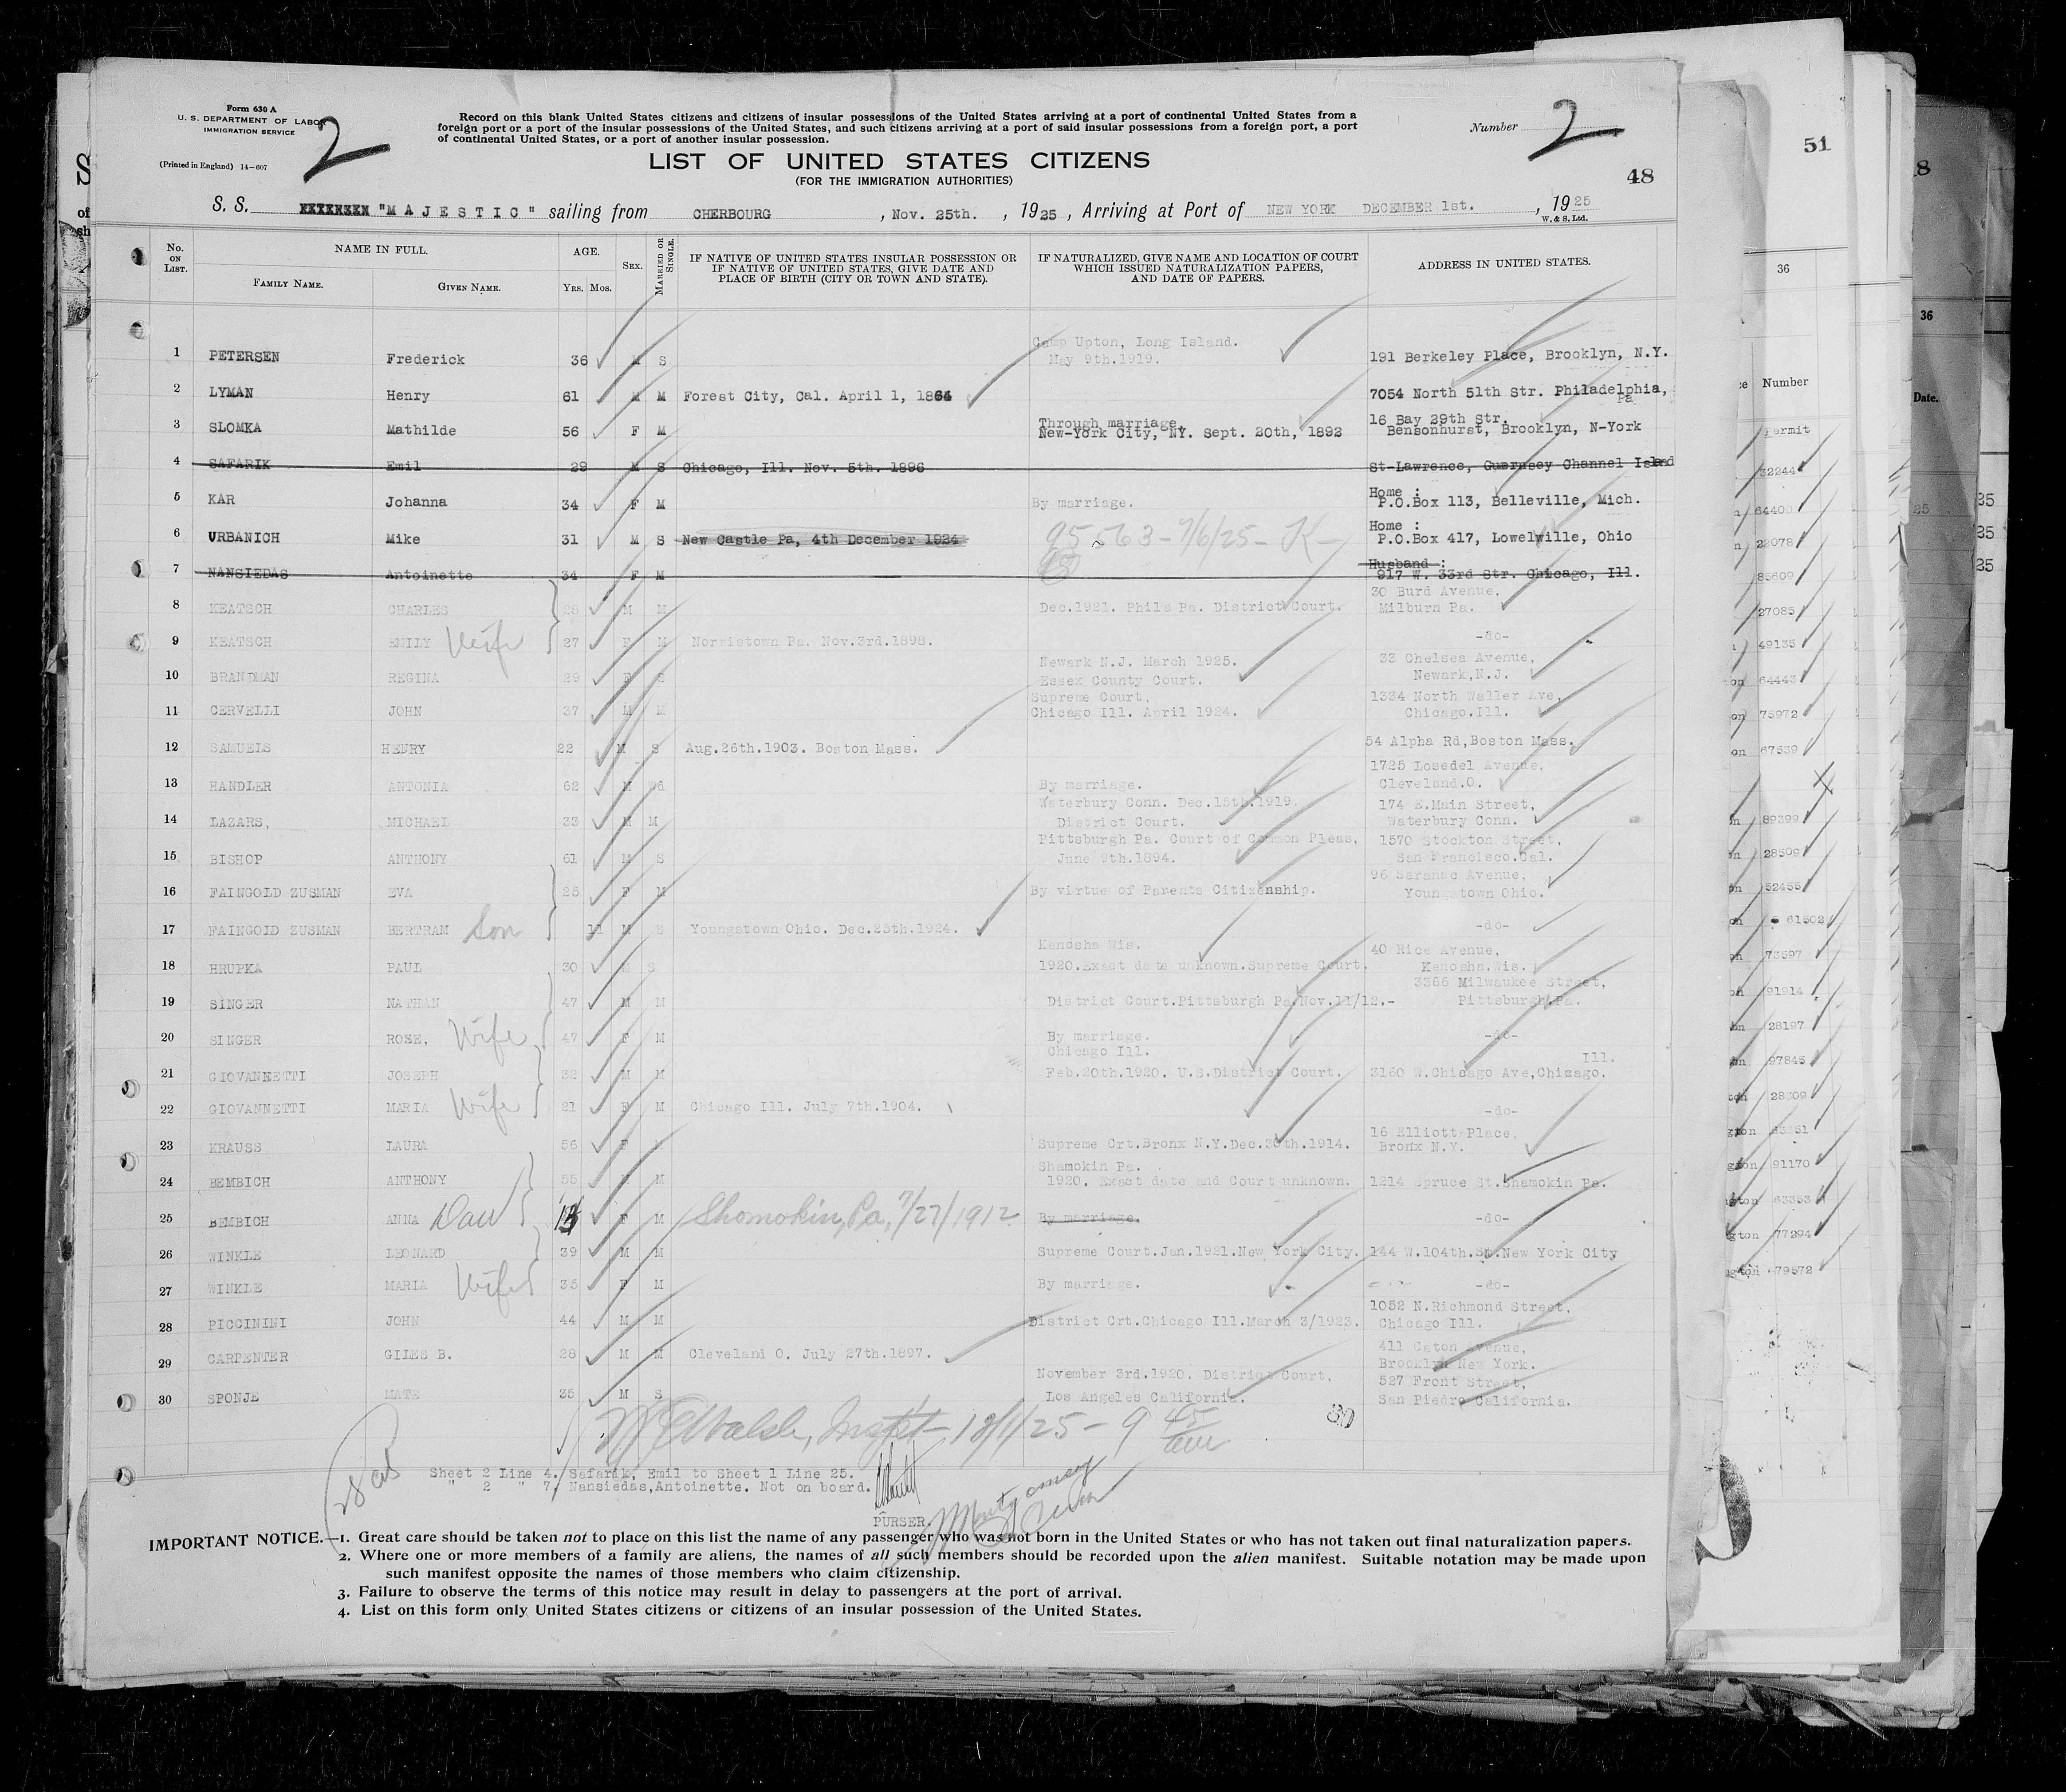 Form 630 A
U. S. DEPARTMENT OF LABOR
IMMIGRATION SERVICE
(Printed in England) 14-607
2
Record on this blank United States citizens and citizens of insular possessions of the United States arriving at a port of continental United States from a
foreign port or a port of the insular possessions of the United States, and such citizens arriving at a port of said insular possessions from a foreign port, a port
of continental United States, or a port of another insular possession.
Number 2
LIST OF UNITED STATES CITIZENS
(FOR THE IMMIGRATION AUTHORITIES)
48
S. S. "MAJESTIC" sailing from CHERBOURG, Nov. 25th., 1925, Arriving at Port of NEW YORK DECEMBER 1st., 1925
W. & S. Ltd.
No. ON LIST. NAME IN FULL. FAMILY NAME. GIVEN NAME. AGE. Yrs. Mos. SEX. MARRIED OR SINGLE. IF NATIVE OF UNITED STATES INSULAR POSSESSION OR IF NATIVE OF UNITED STATES, GIVE DATE AND PLACE OF BIRTH (CITY OR TOWN AND STATE). IF NATURALIZED, GIVE NAME AND LOCATION OF COURT WHICH ISSUED NATURALIZATION PAPERS, AND DATE OF PAPERS. ADDRESS IN UNITED STATES.
1 PETERSEN Frederick 36 M S Camp Upton, Long Island. May 9th.1919. 191 Berkeley Place, Brooklyn, N.Y.
2 LYMAN Henry 61 M M Forest City, Cal. April 1, 1864 7054 North 51th Str. Philadelphia, Pa
3 SLOMKA Mathilde 56 F M Through marriage. New-York City, NY. Sept. 20th, 1892 16 Bay 29th Str. Bensonhurst, Brooklyn, N-York
4 SAFARIK Emil 29 M S Chicago, Ill. Nov. 5th. 1896 St-Lawrence, Guernsey Channel Island
5 KAR Johanna 34 F M By marriage. Home : P.O.Box 113, Belleville, Mich.
6 URBANICH Mike 31 M S New Castle Pa, 4th December 1924 Home : P.O.Box 417, Lowelville, Ohio
7 NANSIEDAS Antoinette 34 F M Husband : 917 W. 33rd Str. Chicago, Ill.
8 KEATSCH CHARLES 28 M M Dec.1921. Phila Pa. District Court. 30 Burd Avenue. Milburn Pa.
9 KEATSCH EMILY Wife 27 F M Norristown Pa. Nov.3rd.1898. -do-
10 BRANDMAN REGINA 29 F S Newark N.J. March 1925. Essex County Court. 33 Chelsea Avenue, Newark,N.J.
11 CERVELLI JOHN 37 M M Supreme Court, Chicago Ill. April 1924. 1334 North Waller Ave, Chicago.Ill.
12 SAMUELS HENRY 22 M S Aug.26th.1903. Boston Mass. 54 Alpha Rd,Boston Mass.
13 HANDLER ANTONIA 62 M Wd. By marriage. 1725 Losedel Avenue, Cleveland.O.
14 LAZARS, MICHAEL 33 M M Waterbury Conn. Dec.15th.1919. District Court. 174 E.Main Street, Waterbury Conn.
15 BISHOP ANTHONY 61 M S Pittsburgh Pa. Court of Common Pleas, June 9th.1894. 1570 Stockton Street, San Francisco.Cal.
16 FAINGOLD ZUSMAN EVA 25 F M By virtue of Parents Citizenship. 96 Saranac Avenue, Youngstown Ohio.
17 FAINGOLD ZUSMAN BERTRAM Son 11 M S Youngstown Ohio. Dec.25th.1924. -do-
18 HRUPKA PAUL 30 M S Kenosha Wis. 1920.Exact date unknown.Supreme Court. 40 Rice Avenue, Kenosha.Wis.
19 SINGER NATHAN 47 M M District Court.Pittsburgh Pa.Nov.11/12.- 3366 Milwaukee Street, Pittsburgh.Pa.
20 SINGER ROSE, Wife 47 F M By marriage. -do-
21 GIOVANNETTI JOSEPH 32 M M Chicago Ill. Feb.20th.1920. U.S.District Court. 3160 W.Chicago Ave,Chicago. Ill.
22 GIOVANNETTI MARIA Wife 21 F M Chicago Ill. July 7th.1904. -do-
23 KRAUSS LAURA 56 F M Supreme Crt.Bronx N.Y.Dec.30th.1914. 16 Elliott Place, Bronx N.Y.
24 BEMBICH ANTHONY 55 M M Shamokin Pa. 1920. Exact date and Court unknown. 1214 Spruce St.Shamokin Pa.
25 BEMBICH ANNA Dau 13 F M Shomokin, Pa, 7/27/1912 By marriage. -do-
26 WINKLE LEONARD 39 M M Supreme Court.Jan.1921.New York City. 144 W.104th.St.New York City
27 WINKLE MARIA Wife 35 F M By marriage. -do-
28 PICCININI JOHN 44 M M District Crt.Chicago Ill.March 3/1923. 1052 N.Richmond Street, Chicago Ill.
29 CARPENTER GILES B. 28 M M Cleveland O. July 27th.1897. 411 Avenue, Brooklyn New York.
30 SPONJE MATE 35 M S November 3rd.1920. District Court, Los Angeles California. 527 Front Street, San Piedro California.
12/1/25 - 9 45 am
Sheet 2 Line 4. Safarik, Emil to Sheet 1 Line 25.
" 2 " 7. Nansiedas,Antoinette. Not on board.
PURSER.
IMPORTANT NOTICE.—1. Great care should be taken not to place on this list the name of any passenger who was not born in the United States or who has not taken out final naturalization papers.
2. Where one or more members of a family are aliens, the names of all such members should be recorded upon the alien manifest. Suitable notation may be made upon
such manifest opposite the names of those members who claim citizenship.
3. Failure to observe the terms of this notice may result in delay to passengers at the port of arrival.
4. List on this form only United States citizens or citizens of an insular possession of the United States.
51
36
Number
Permit
32244
22078
85609
27085
49135
64443
75972
67539
89399
28509
52455
61502
73597
91914
28197
97845
91170
63353
77294
79572
36
Date.
25
25
25